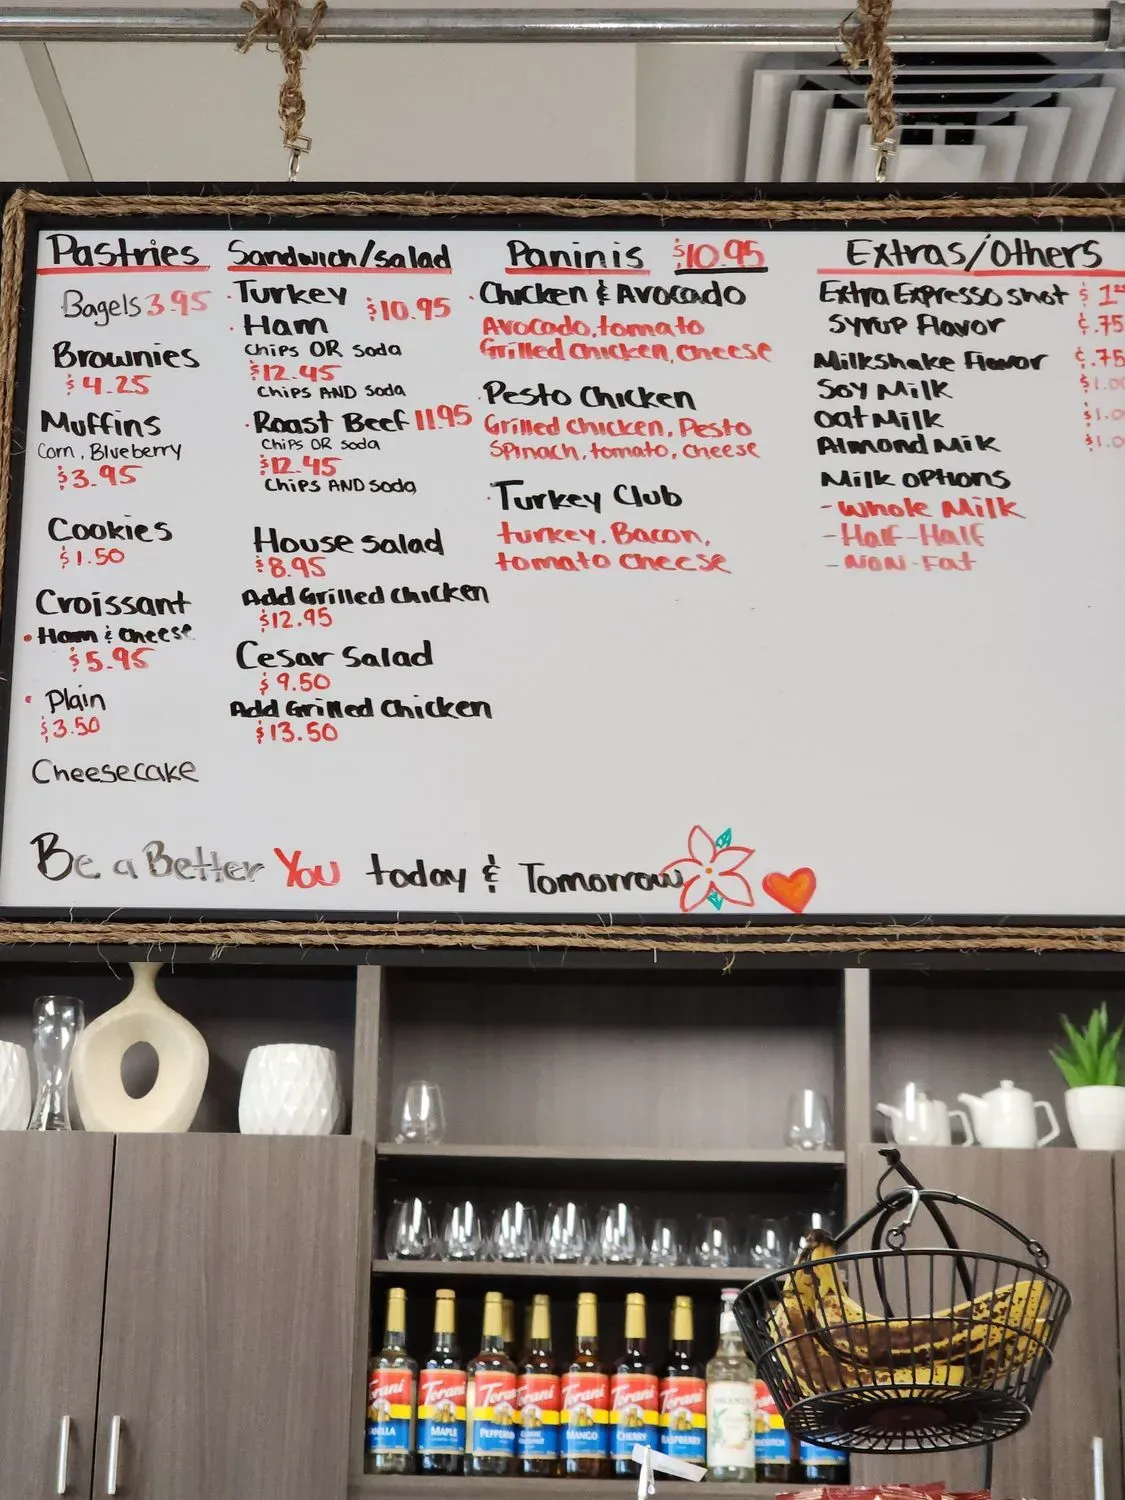 Pastries
Bagels 3.95
Brownies
$4.25
Muffins
Corn, Blueberry
$3.95
Cookies
$1.50
Croissant
• Ham & Cheese
$5.95
• Plain
$3.50
Cheesecake
Sandwich/salad
· Turkey $10.95
· Ham
Chips OR Soda
$12.45
Chips AND Soda
· Roast Beef 11.95
Chips OR Soda
$12.45
Chips AND Soda
House Salad
$8.95
Add Grilled Chicken
$12.95
Cesar Salad
$9.50
Add Grilled Chicken
$13.50
Paninis $10.95
· Chicken & Avocado
Avocado, tomato
Grilled Chicken, Cheese
· Pesto Chicken
Grilled Chicken, Pesto
Spinach, tomato, cheese
· Turkey Club
turkey, Bacon,
tomato cheese
Extras/Others
Extra Expresso shot $1
Syrup Flavor ¢.75
Milkshake Flavor ¢.75
Soy Milk $1.0
Oat Milk $1.0
Almond Mik $1.0
Milk Options
- Whole Milk
- Half-Half
- Non-Fat
Be a Better You today & Tomorrow
Torani Torani Torani Torani Torani Torani Torani
MAPLE
MANGO
CHERRY
RASPBERRY